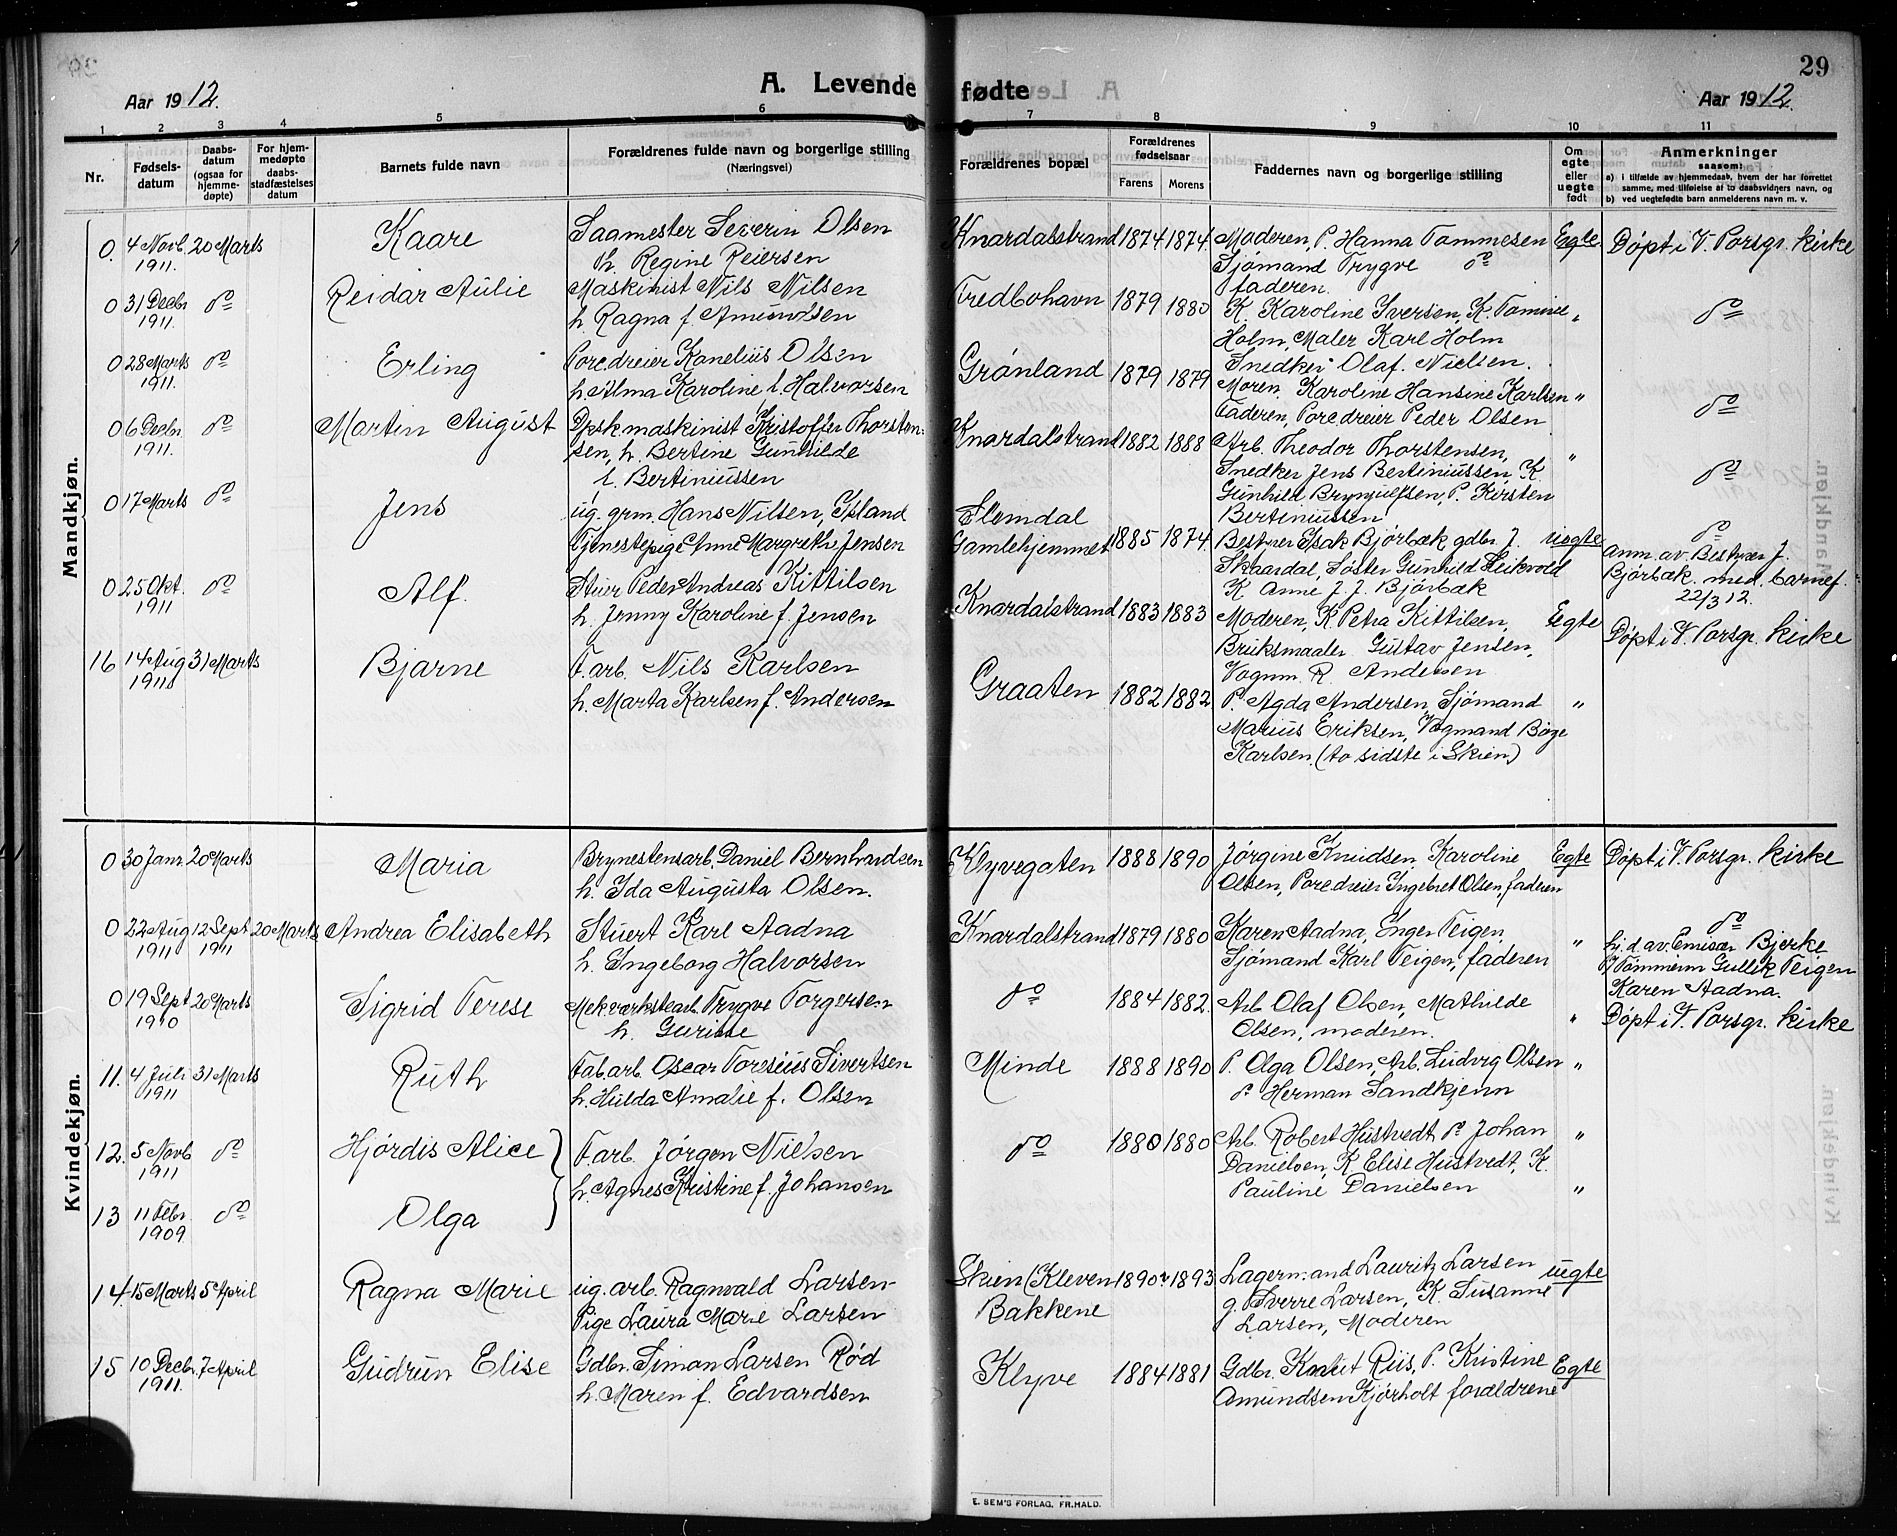 29
A. Levende fødte
Aar 1912.
Aar 1912.
1 2 3 4 5 6 7 8 9 10 11
Nr.
Fødselsdatum
Daabsdatum (ogsaa for hjemmedøpte)
For hjemmedøpte daabsstadfæstelses datum
Barnets fulde navn
Forældrenes fulde navn og borgerlige stilling
(Næringsvei)
Forældrenes bopæl
Forældrenes fødselsaar
Farens Morens
Faddernes navn og borgerlige stilling
Om egte eller uegte født
Anmerkninger
saasom:
a) i tilfælde av hjemmedaab, hvem der har forrettet samme, med tilføielse af to daabsvidners navn, og
b) ved uegtefødte barn anmelderens navn m. v.
Mandkjøn.
0. 4 Novb. 1911. 20 Marts Kaare
Saamester Severin Olsen
h. Regine Reiersen
Knardalstrand 1874 1874.
Moderen, P. Hanna Tommesen
Sjømand Trygve do
faderen.
Egte. Døpt i V. Porsgr. kirke
0 31 Decbr 1911. do Reidar Aulie
Maskinist Nils Nilsen
h. Ragna f. Amundsen
Fredbohavn 1879 1880
K. Karoline Iversen, K. Tomine
Holm, Maler Karl Holm
Snedker Olaf Nielsen.
" do
0 28 Marts 1911. do Erling
Poredreier Kanelius Olsen
h. Alma Karoline f. Halvorsen
Grønland 1879 1879
Moren, Karoline Hansine Karlsen
Faderen, Poredreier Peder Olsen
" do
0 6 Decbr 1911. do Martin August
Dpsk.maskinist Kristoffer Thorsten-
sen, h. Bertine Gunhilde
f. Bertiniussen
Knardalstrand 1882 1888
Arb. Theodor Thorstensen,
Snedker Jens Bertiniussen, K.
Gunhild Brynjulfsen, P. Kirsten
Bertiniussen
" do
0 17 Marts do Jens
ug. grm. Hans Nilsen, Ysland
Tjenestepige Anne Margrethe Jensen
Slemdal
Gamlehjemmet 1885 1874.
Bestyrer Isak Bjørbæk gdbr. J.
Skaardal, Søster Gunhild Heikvold
K. Anne J. J. Bjørbæk
uegte do
Anm. av Bestyrer J.
Bjørbæk. med. barnef.
22/3 12.
0 25 Okt. 1911 do Alf.
Stuer Peder Andreas Kittilsen
h. Jenny Karoline f. Jensen
Knardalstrand 1883 1883
Moderen, K. Petra Kittilsen,
Bruksmaaler Gustav Jensen,
Vognm. R. Andersen
Egte Døpt i V. Porsgr. kirke
16 14 Aug 1911 31 Marts Bjarne
F. arb. Nils Karlsen
h. Marta Karlsen f. Andersen
Graaten 1882 1882
P. Agda Andersen, Sjømand
Marius Eriksen, Vogmand Børge
Karlsen. (to sidste i Skien)
"
Kvindekjøn.
0 30 Janr 20 Marts Maria
Brynestensarb. Daniel Bernhardsen
h. Ida Augusta Olsen.
Klyvegaten 1888 1890
Jørgine Knudsen Karoline
Olsen, Poredreier Ingebret Olsen, faderen
Egte Døpt i V. Porsgr. kirke
0 22 Aug 1911 12 Sept 1911 20 Marts Andrea Elisabeth
Stuert Karl Aadna
h. Ingeborg Halvorsen
Knardalstrand 1879 1880
Karen Aadna, Inger Teigen,
Sjømand Karl Teigen, faderen
" do
hj.d. av. Emisær Bjerke
Tømmerm Gullik Teigen
Karen Aadna.
0 19 Sept 1910 20 Marts Sigrid Terese
Mek. verkstedarb. Trygve Torgersen
h. Gurine
do 1884 1882.
Arb Olaf Olsen, Mathilde
Olsen, moderen.
" Døpt i V. Porsgr. kirke
11. 4 Juli 1911 31 Marts Ruth
Fab. arb. Oscar Toresius Sivertsen
h. Hulda Amalie f. Olsen
Minde 1888 1890
P. Olga Olsen, Arb. Ludvig Olsen
do Herman Sandkjenn
"
12. 5 Novb 1911 do Hjørdis Alice
F. arb. Jørgen Nielsen
h. Agnes Kristine f. Johansen
do 1880 1880
Arb. Robert Hustvedt, do Johan
Danielsen, K. Elise Hustvedt, K.
Pauline Danielsen
"
13 11 Febr 1909. do Olga
"
14. 15 Marts 5 April Ragna Marie
ug. arb. Ragnvald Larsen
Pige Laura Marie Larsen
Skien (Kleven
Bakkene 1890 1893.
Lagermand Lauritz Larsen
g. Sverre Larsen, K. Susanne
Larsen, Moderen
uegte
15 10 Decbr 1911. 7 April Gudrun Elise
Gdbr. Simon Larsen Rød
h. Maren f. Edvardsen
Klyve 1884 1881
Gdbr. Knut Riis, P. Kristine
Amundsen Kjørholt forældrene
Egte
E. SEM'S FORLAG, FR.HALD.